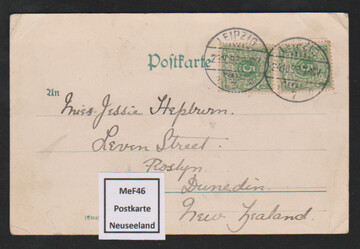 LEIPZIG
LEIPZIG
Postkarte
5
5
An
Miss Jessie Hepburn.
Leven Street.
Roslyn
Dunedin.
New Zealand.
MeF46
Postkarte
Neuseeland